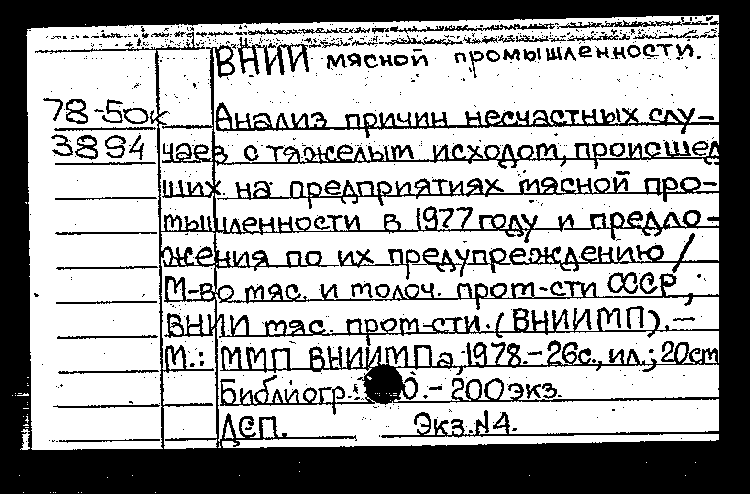 ВНИИ мясной промышленности.
78-50к Анализ причин несчастных слу-
3894 чаев с тяжелым исходом, происшед
ших на предприятиях мясной про-
мышленности в 1977 году и предло-
жения по их предупреждению /
М-во мяс. и молоч. пром-сти СССР,
ВНИИ мяс. пром-сти. (ВНИИМП). —
М.: ММП ВНИИМПа, 1978.- 26с., ил.; 20см
Библиогр.: 0.- 200экз.
ДСП. Экз.№4.